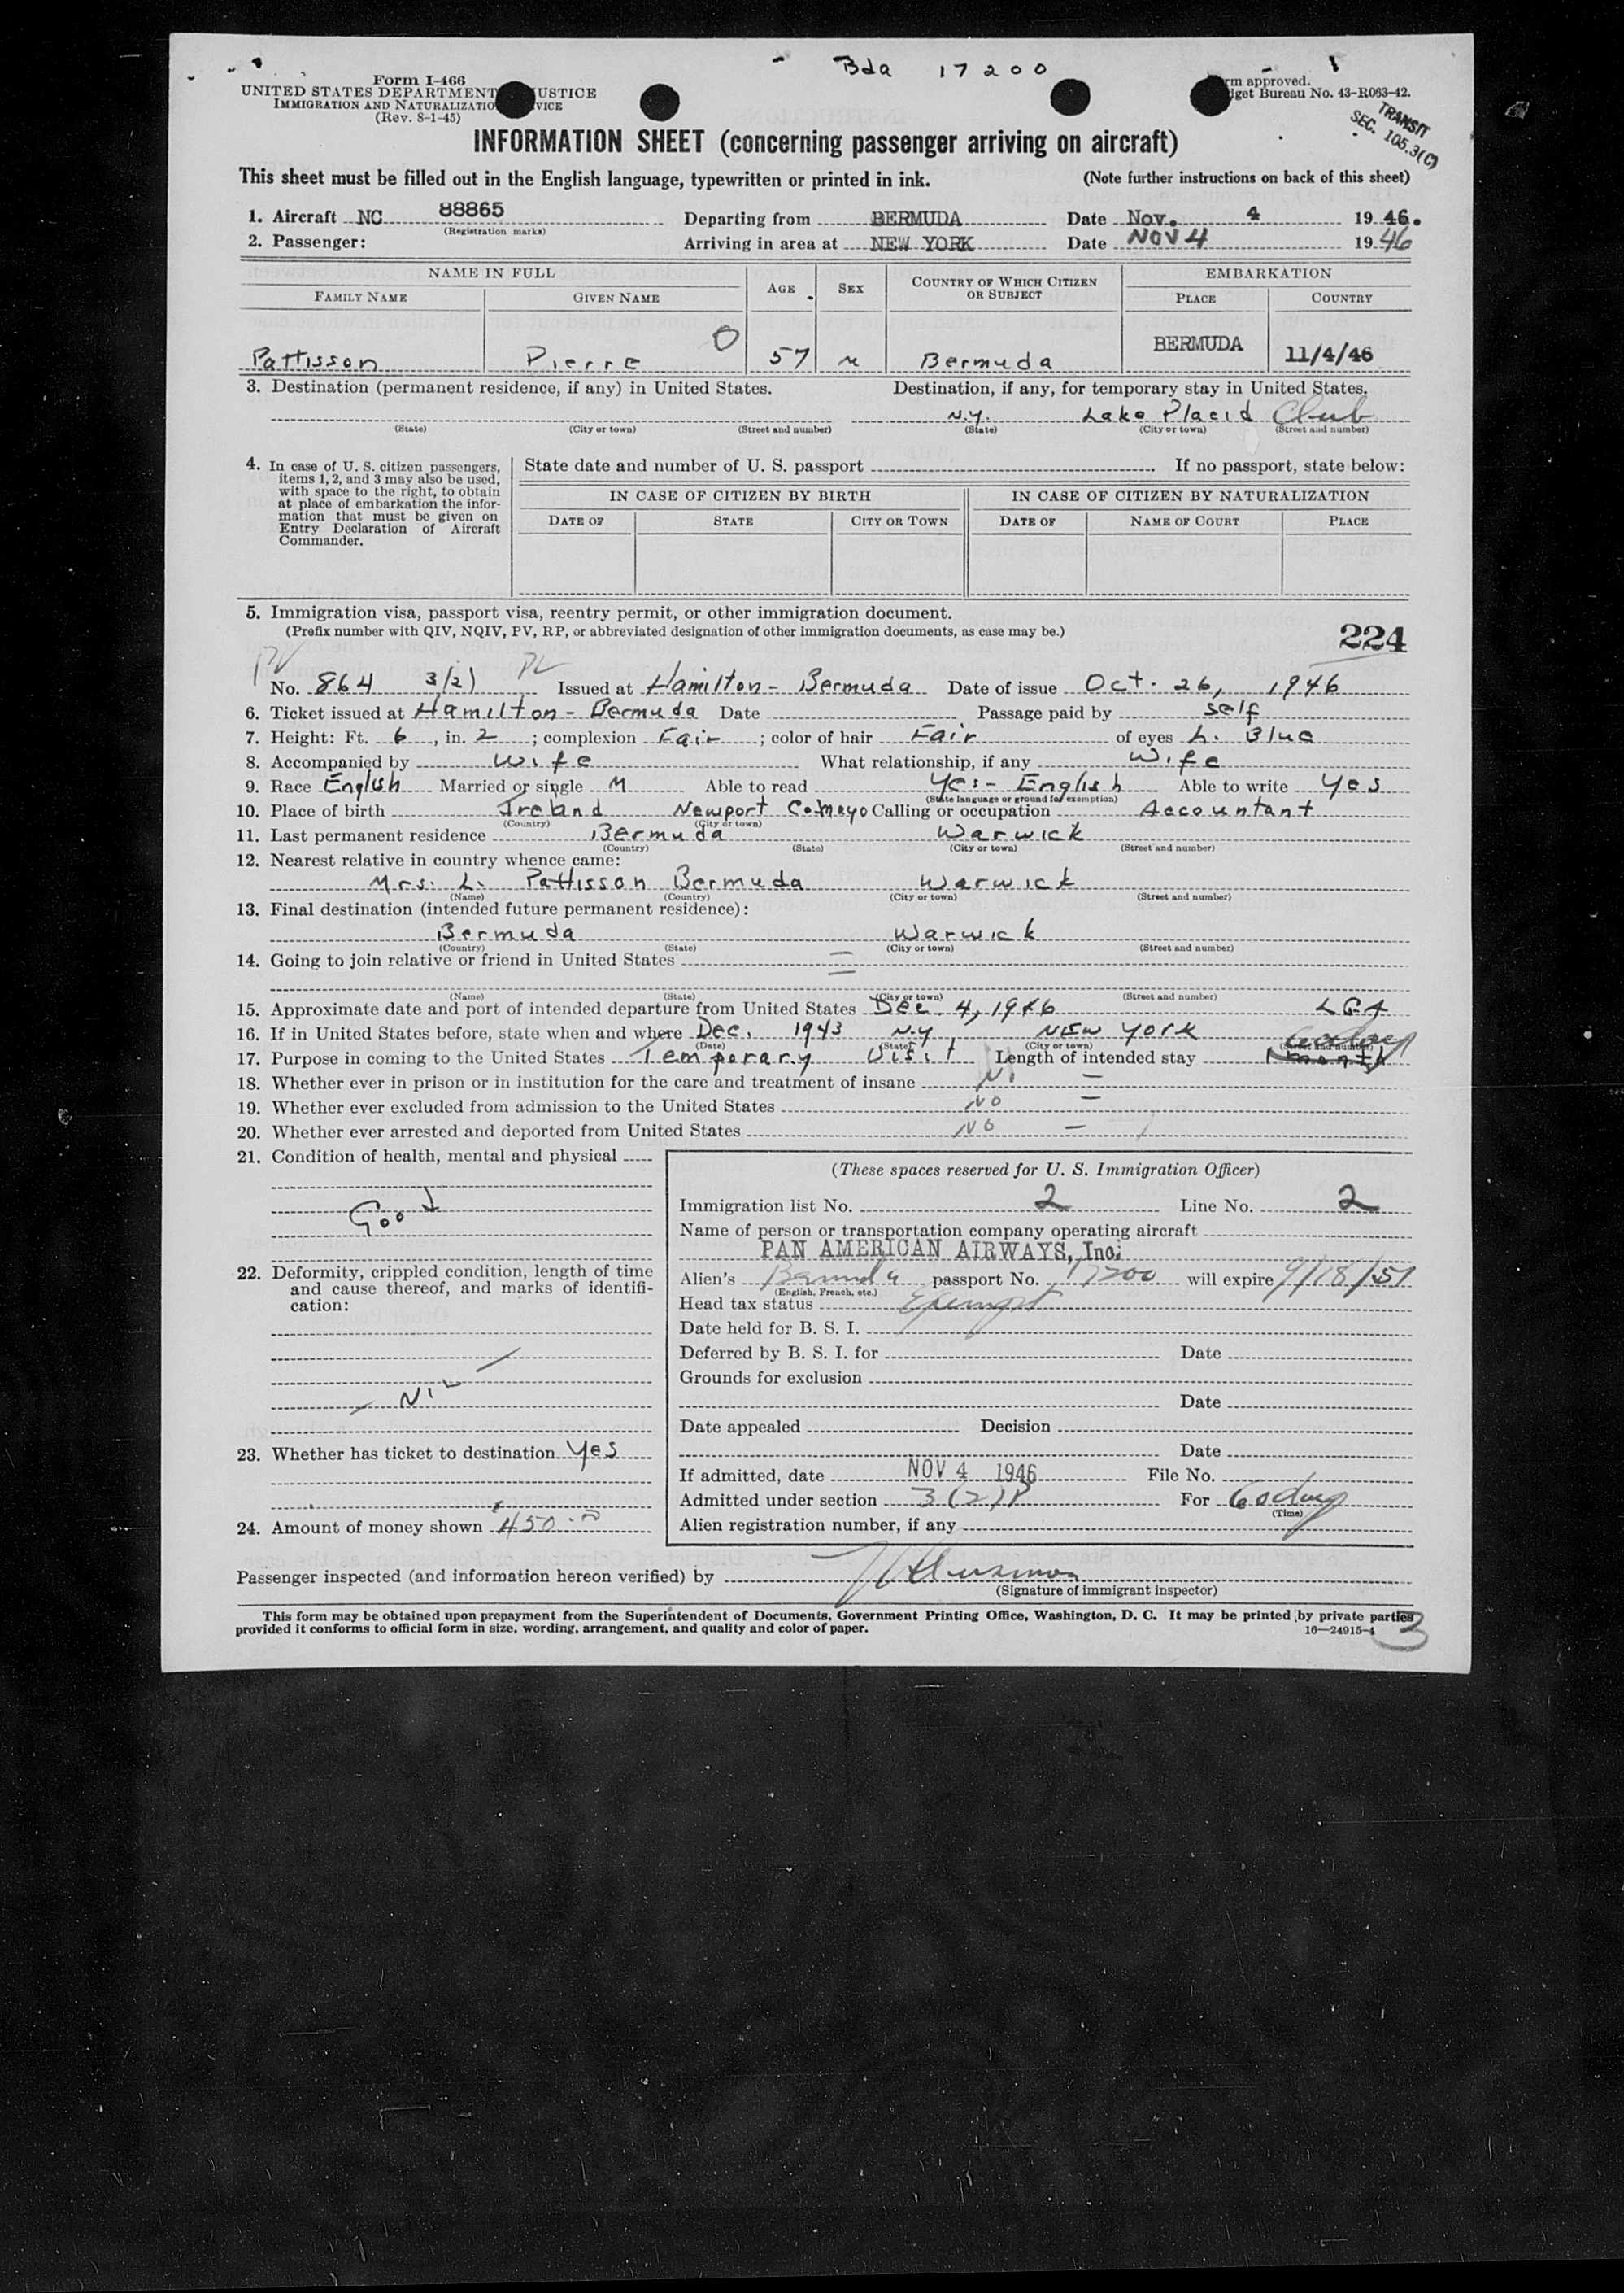 Bda 17200
Form I-466
UNITED STATES DEPARTMENT USTICE
IMMIGRATION AND NATURALIZATIO VICE
(Rev. 8-1-45)
rm approved.
get Bureau No. 43-R063-42.
TRANSIT
SEC. 105.3(C)
INFORMATION SHEET (concerning passenger arriving on aircraft)
This sheet must be filled out in the English language, typewritten or printed in ink. (Note further instructions on back of this sheet)
1. Aircraft NC 88865 Departing from BERMUDA Date Nov. 4 1946.
(Registration marks)
2. Passenger: Arriving in area at NEW YORK Date NOV 4 1946
NAME IN FULL AGE SEX COUNTRY OF WHICH CITIZEN OR SUBJECT EMBARKATION
FAMILY NAME GIVEN NAME PLACE COUNTRY
Pattisson Pierre O 57 M Bermuda BERMUDA 11/4/46
3. Destination (permanent residence, if any) in United States. Destination, if any, for temporary stay in United States.
N.Y. Lake Placid Club
(State) (City or town) (Street and number) (State) (City or town) (Street and number)
4. In case of U. S. citizen passengers, items 1, 2, and 3 may also be used, with space to the right, to obtain at place of embarkation the information that must be given on Entry Declaration of Aircraft Commander.
State date and number of U. S. passport If no passport, state below:
IN CASE OF CITIZEN BY BIRTH IN CASE OF CITIZEN BY NATURALIZATION
DATE OF STATE CITY OR TOWN DATE OF NAME OF COURT PLACE
5. Immigration visa, passport visa, reentry permit, or other immigration document.
(Prefix number with QIV, NQIV, PV, RP, or abbreviated designation of other immigration documents, as case may be.)
224
PV
No. 864 3(2) PV Issued at Hamilton - Bermuda Date of issue Oct. 26, 1946
6. Ticket issued at Hamilton - Bermuda Date Passage paid by self
7. Height: Ft. 6, in. 2; complexion Fair; color of hair Fair of eyes L. Blue
8. Accompanied by Wife What relationship, if any Wife
9. Race English Married or single M Able to read Yes - English Able to write Yes
(State language or ground for exemption)
10. Place of birth Ireland Newport Co. Mayo Calling or occupation Accountant
(Country) (City or town)
11. Last permanent residence Bermuda Warwick
(Country) (State) (City or town) (Street and number)
12. Nearest relative in country whence came:
Mrs. L. Pattisson Bermuda Warwick
(Name) (Country) (City or town) (Street and number)
13. Final destination (intended future permanent residence):
Bermuda Warwick
(Country) (State) (City or town) (Street and number)
14. Going to join relative or friend in United States
(Name) (State) (City or town) (Street and number)
15. Approximate date and port of intended departure from United States Dec. 4, 1946 LGA
16. If in United States before, state when and where Dec. 1943 N.Y NEW YORK
(Date) (State) (City or town) (Street and number)
17. Purpose in coming to the United States Temporary Visit Length of intended stay 1 month 60 days
18. Whether ever in prison or in institution for the care and treatment of insane No -
19. Whether ever excluded from admission to the United States No -
20. Whether ever arrested and deported from United States No -
21. Condition of health, mental and physical
Good
22. Deformity, crippled condition, length of time and cause thereof, and marks of identification:
Nil
23. Whether has ticket to destination Yes
24. Amount of money shown 450.00
(These spaces reserved for U. S. Immigration Officer)
Immigration list No. 2 Line No. 2
Name of person or transportation company operating aircraft
PAN AMERICAN AIRWAYS, Inc.
Alien's Bermuda passport No. 17200 will expire 9/18/51
(English, French, etc.)
Head tax status Exempt
Date held for B. S. I.
Deferred by B. S. I. for Date
Grounds for exclusion
Date
Date appealed Decision
Date
If admitted, date NOV 4 1946 File No.
Admitted under section 3(2)P For 60 days
(Time)
Alien registration number, if any
Passenger inspected (and information hereon verified) by
(Signature of immigrant inspector)
This form may be obtained upon prepayment from the Superintendent of Documents, Government Printing Office, Washington, D. C. It may be printed by private parties
provided it conforms to official form in size, wording, arrangement, and quality and color of paper. 16—24915-4
3